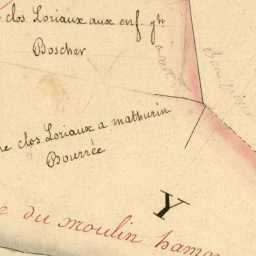 clos Loriaux aux enf. gts
Boscher
clos Loriaux a mathurin
Bourrée
Y
du moulin hamon